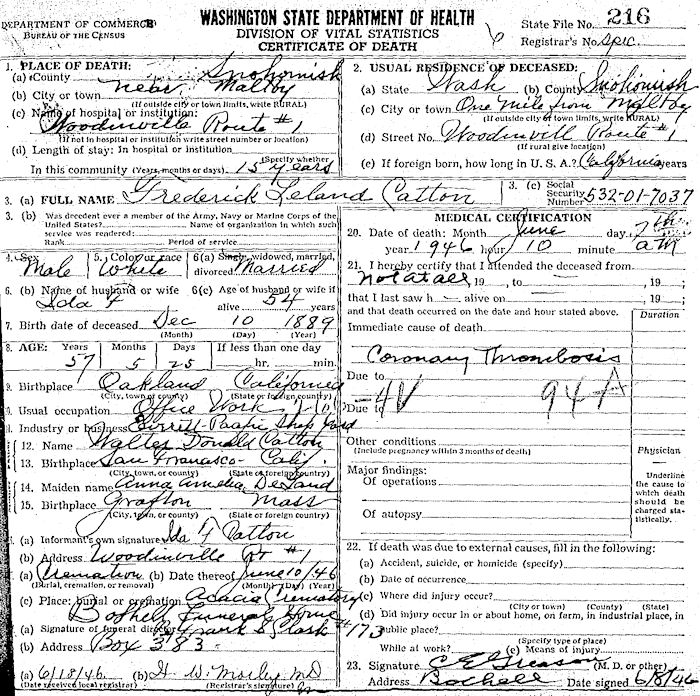 DEPARTMENT OF COMMERCE
BUREAU OF THE CENSUS
WASHINGTON STATE DEPARTMENT OF HEALTH
DIVISION OF VITAL STATISTICS
CERTIFICATE OF DEATH
State File No. 216
Registrar's No. Spec.
1. PLACE OF DEATH:
(a) County Snohomish
(b) City or town near Maltby
(If outside city or town limits, write RURAL)
(c) Name of hospital or institution:
Woodinville Route #1
(If not in hospital or institution write street number or location)
(d) Length of stay: In hospital or institution
(Specify whether
In this community (Years, months or days). 15 years
2. USUAL RESIDENCE OF DECEASED:
(a) State Wash (b) County Snohomish
(c) City or town One mile from Maltby
(If outside city or town limits, write RURAL)
(d) Street No. Woodinvill Route #1
(If rural give location)
(e) If foreign born, how long in U. S. A.? California years
3. (a) FULL NAME Frederick Leland Catton
3. (c) Social Security Number 532-01-7037
3. (b) Was decedent ever a member of the Army, Navy or Marine Corps of the
United States? Name of organization in which such
service was rendered:
Rank Period of service
4. Sex Male
5. Color or race White
6(a) Single, widowed, married, divorced Married
6. (b) Name of husband or wife Ida F
6(c) Age of husband or wife if alive 54 years
7. Birth date of deceased Dec 10 1889
(Month) (Day) (Year)
8. AGE: Years Months Days If less than one day
57 5 25 hr. min.
9. Birthplace Oakland California
(City, town, or county) (State or foreign country)
Usual occupation Office Work
Industry or business Pacific Ship Yard
12. Name Walter Donald Catton
13. Birthplace San Francisco Calif.
(City, town, or county) (State or foreign country)
14. Maiden name Anna Amelia DeLand
15. Birthplace Grafton Mass
(City, town, or county) (State or foreign country)
(a) Informant's own signature Ida F Catton
(b) Address Woodinville Rt #1
(a) Cremation (b) Date thereof June 10/46
(Burial, cremation, or removal) (Month) (Day) (Year)
(c) Place: burial or cremation Acacia Crematory
Bothell Funeral Home
(a) Signature of funeral director Frank S Clark #173
(b) Address Box 383
(a) 6/18/46 (b) H. W. M.D.
(Date received local registrar) (Registrar's signature)
MEDICAL CERTIFICATION
20. Date of death: Month June day 7th
year 1946 hour 10 minute am
21. I hereby certify that I attended the deceased from
not at all, 19 , to , 19 ;
that I last saw h alive on , 19 ;
and that death occurred on the date and hour stated above.
Immediate cause of death
Duration
Coronary Thrombosis
Due to
Due to
94A
Other conditions
(Include pregnancy within 3 months of death)
Major findings:
Of operations
Of autopsy
Physician
Underline
the cause to
which death
should be
charged sta-
tistically.
22. If death was due to external causes, fill in the following:
(a) Accident, suicide, or homicide (specify)
(b) Date of occurrence
(c) Where did injury occur?
(City or town) (County) (State)
(d) Did injury occur in or about home, on farm, in industrial place, in
public place?
(Specify type of place)
While at work? (e) Means of injury
23. Signature C E (M. D. or other)
Address Bothell Date signed 6/8/46